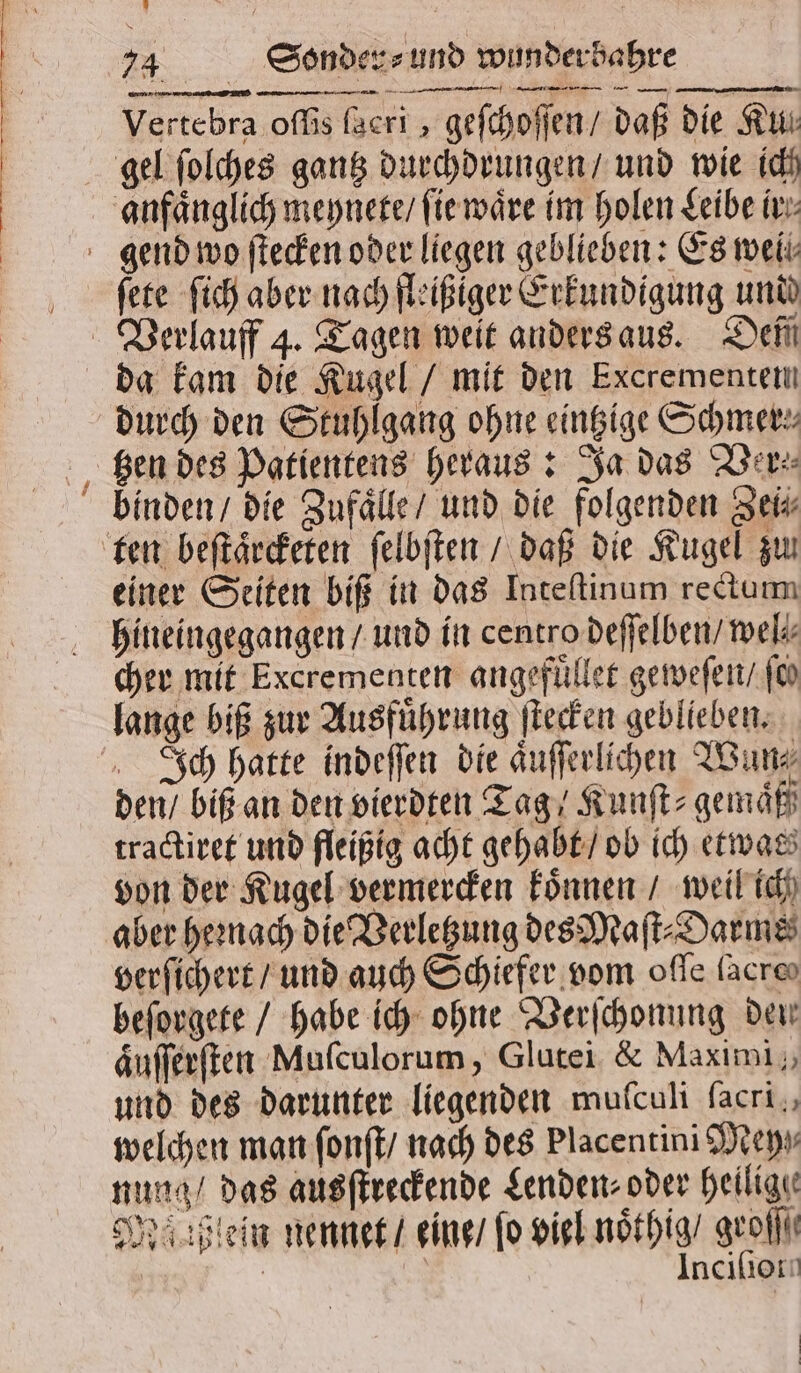 74 Sonder⸗und wunderbahre
Vertebra oſſis ſacri, geſchoſſen/ daß die Ku⸗
gel ſolches gantz durchdrungen/ und wie ich
anfaͤnglich meynete/ ſie waͤre im holen Leibe ir⸗
gend wo ſtecken oder liegen geblieben: Es wei⸗
ſete ſich aber nach fleißiger Erkundigung und
Verlauff 4. Tagen weit anders aus. Deñ
da kam die Kugel / mit den Excrementen
durch den Stuhlgang ohne eintzige Schmer⸗
tzen des Patientens heraus : Ja das Ver⸗
binden/ die Zufaͤlle/ und die folgenden Zei⸗
ten beſtaͤrcketen ſelbſten / daß die Kugel zu
einer Seiten biß in das Inteſtinum rectum
hineingegangen / und in centro deſſelben/ wel⸗
cher mit Excrementen angefuͤllet geweſen/ ſo
lange biß zur Ausfuͤhrung ſtecken geblieben.
Ich hatte indeſſen die aͤuſſerlichen Wun⸗
den/ biß an den vierdten Tag/ Kunſt⸗gemaͤß
tractiret und fleißig acht gehabt/ ob ich etwas
von der Kugel vermercken koͤnnen / weil ich
aber hernach die Verletzung des Maſt⸗Darms
verſichert / und auch Schiefer vom oſſe ſacro
beſorgete / habe ich ohne Verſchonung der
aͤuſſerſten Muſculorum, Glutei & Maximi,
und des darunter liegenden muſculi ſacri,
welchen man ſonſt/ nach des Placentini Mey⸗
nung/ das ausſtreckende Lenden⸗oder heilige
Maͤußlein nennet / eine/ ſo viel noͤthig/ groſſe
Inciſion